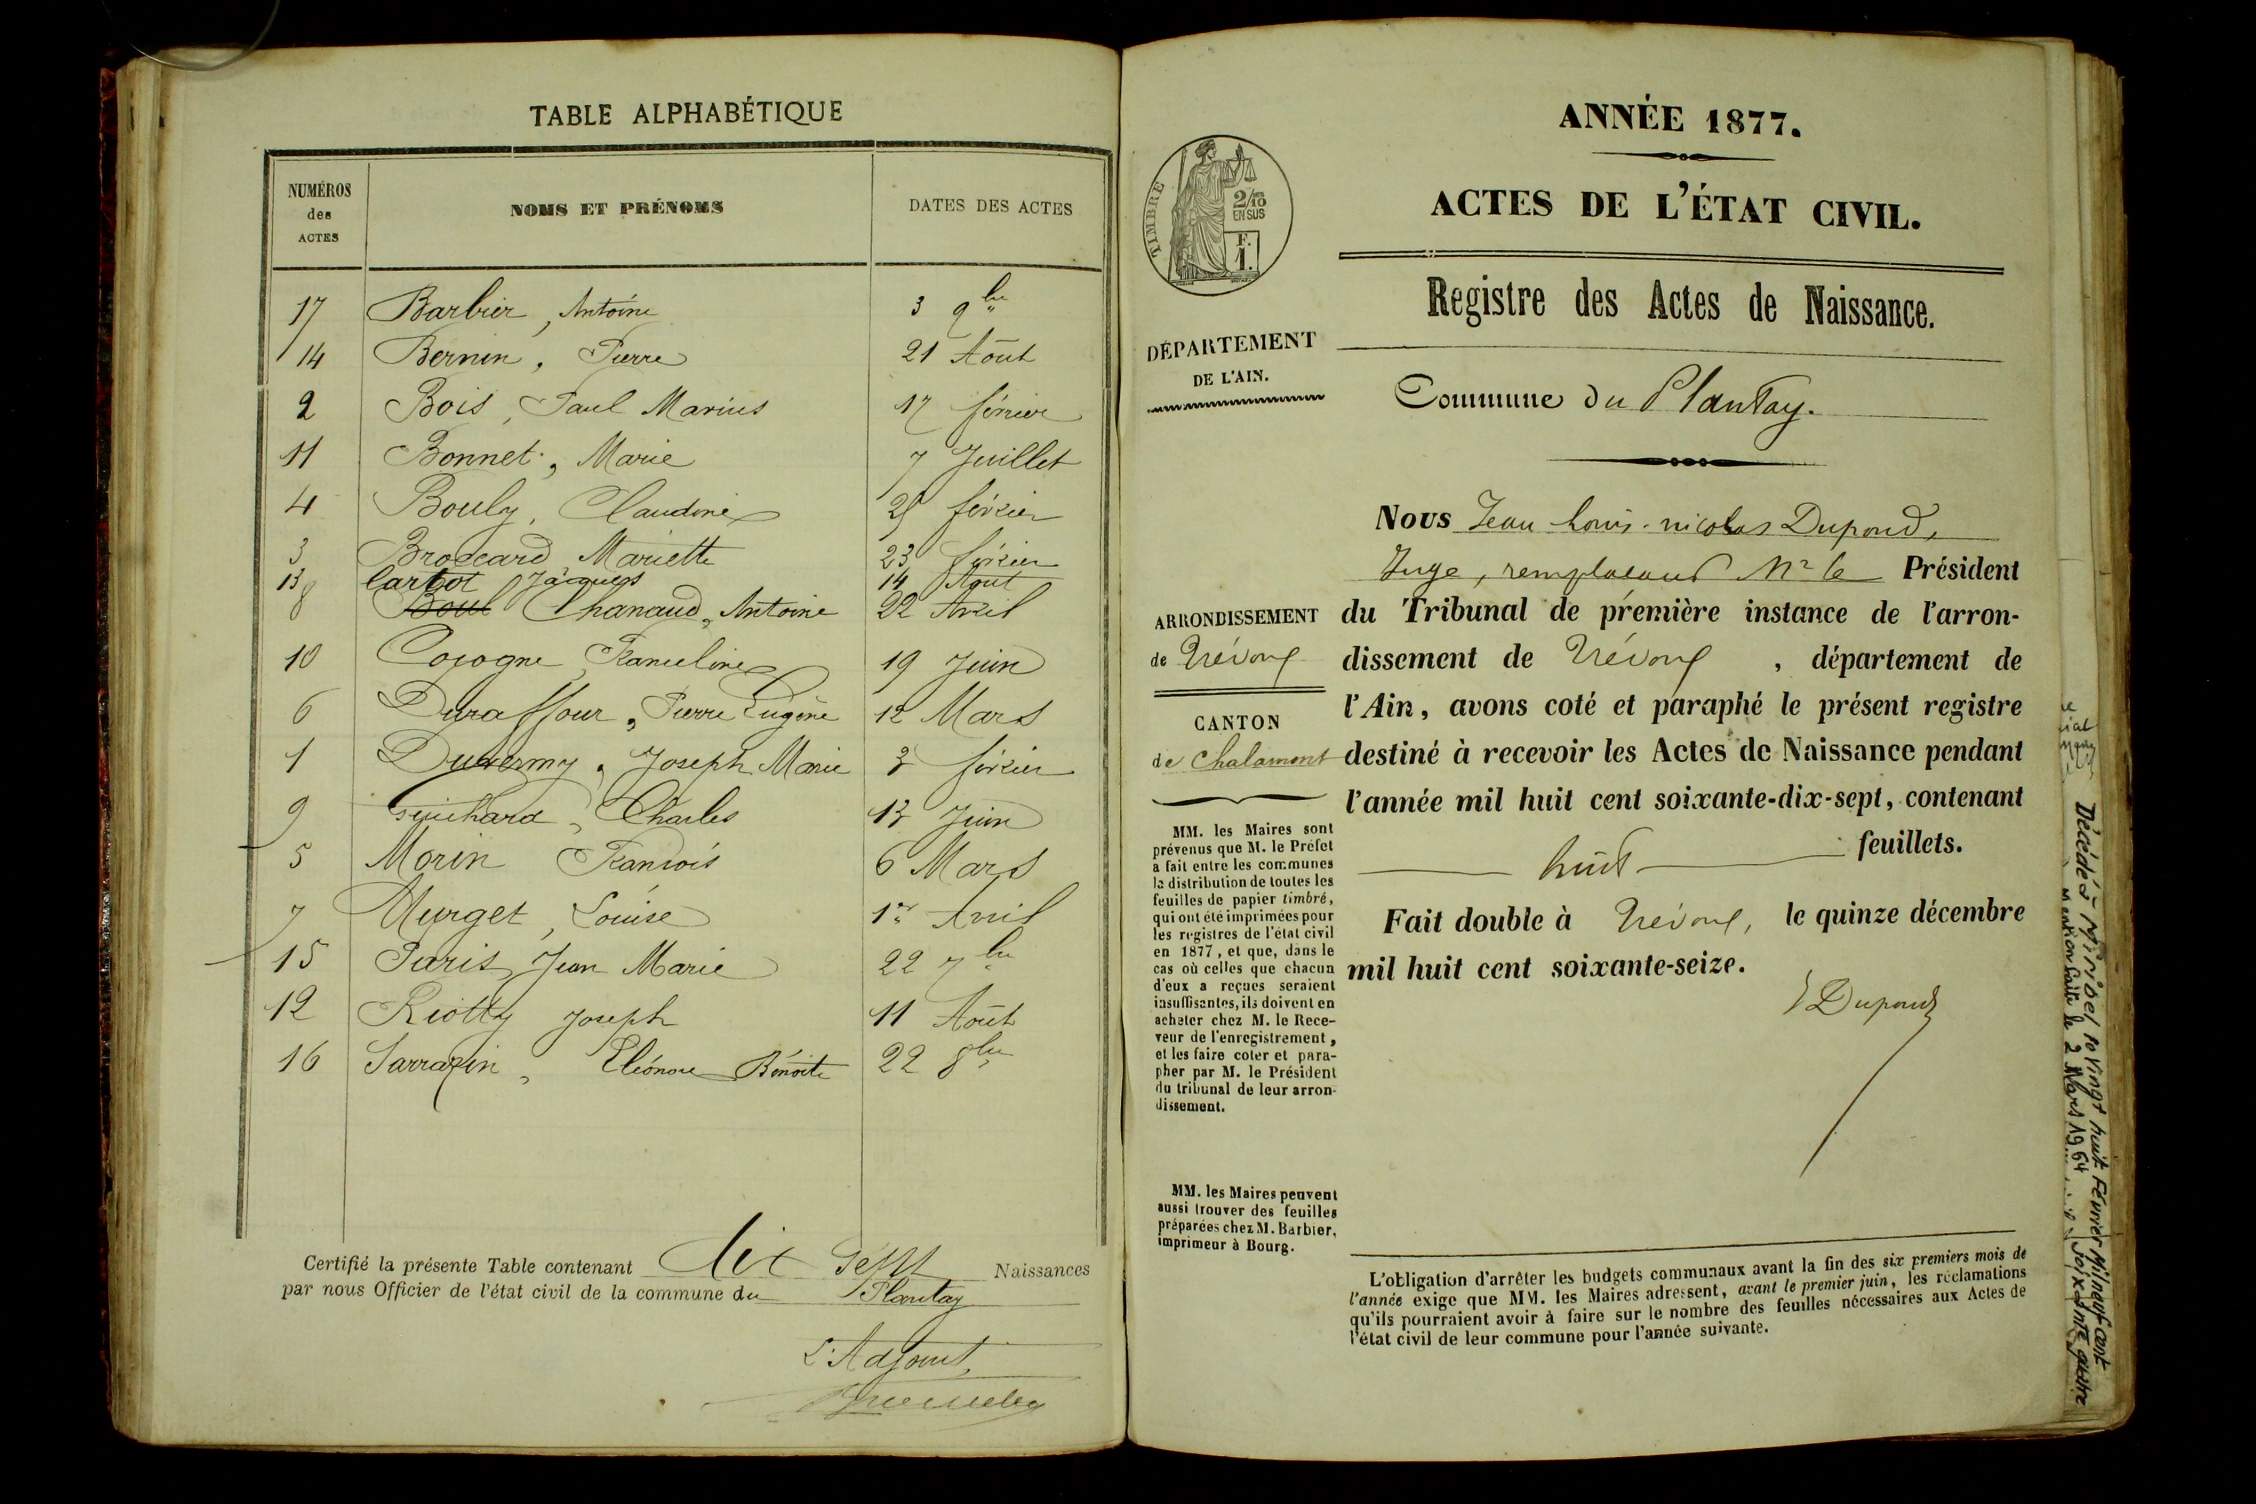 TABLE ALPHABÉTIQUE
NUMÉROS des ACTES
NOMS ET PRÉNOMS
DATES DES ACTES
17 Barbier, Antoine 3 9bre
14 Bernin, Pierre 21 Août
2 Bois, Paul Marius 17 février
11 Bonnet, Marie 7 Juillet
4 Bouly, Claudine 25 février
3 Broccard Mariette 23 février
13 Carbot Jacques 14 Aout
8 Boul Chanaud, Antoine 22 Avril
10 Cocogne 19 Juin
6 Duraffour, Pierre Eugène 12 Mars
1 Joseph Marie 3 février
9 Guichard, Charles 13 Juin
5 Morin François 6 Mars
7 Murget, Louise 1er Avril
15 Paris, Jean Marie 22 7bre
12 Riotty Joseph 11 Août
16 Sarrazin, Eléonore Bénoite 22 8bre
Certifié la présente Table contenant dix sept Naissances
par nous Officier de l'état civil de la commune du Plantay
L'Adjoint,
ANNÉE 1877.
TIMBRE
2/10
EN SUS
F.
1.
ACTES DE L'ÉTAT CIVIL.
Registre des Actes de Naissance.
DÉPARTEMENT
DE L'AIN.
Commune du Plantay.
Nous Jean-Louis-nicolas Dupond,
Juge, remplaçant Mr le Président
ARRONDISSEMENT
de Trévoux
CANTON
de Chalamont
du Tribunal de première instance de l'arron-
dissement de Trévoux, département de
l'Ain, avons coté et paraphé le présent registre
destiné à recevoir les Actes de Naissance pendant
l'année mil huit cent soixante-dix-sept, contenant
huit feuillets.
Fait double à Trévoux, le quinze décembre
mil huit cent soixante-seize.
Dupond
MM. les Maires sont
prévenus que M. le Préfet
a fait entre les communes
la distribution de toutes les
feuilles de papier timbré,
qui ont été imprimées pour
les registres de l'état civil
en 1877, et que, dans le
cas où celles que chacun
d'eux a reçues seraient
insuffisantes, ils doivent en
acheter chez M. le Rece-
veur de l'enregistrement,
et les faire coter et para-
pher par M. le Président
du tribunal de leur arron-
dissement.
MM. les Maires peuvent
aussi trouver des feuilles
préparées chez M. Barbier,
imprimeur à Bourg.
L'obligation d'arrêter les budgets communaux avant la fin des six premiers mois de
l'année exige que MM. les Maires adressent, avant le premier juin, les réclamations
qu'ils pourraient avoir à faire sur le nombre des feuilles nécessaires aux Actes de
l'état civil de leur commune pour l'année suivante.
Décédé à Miribel le vingt huit Février Mil neuf cent
soixante quatre
Mention faite le 2 Mars 1964